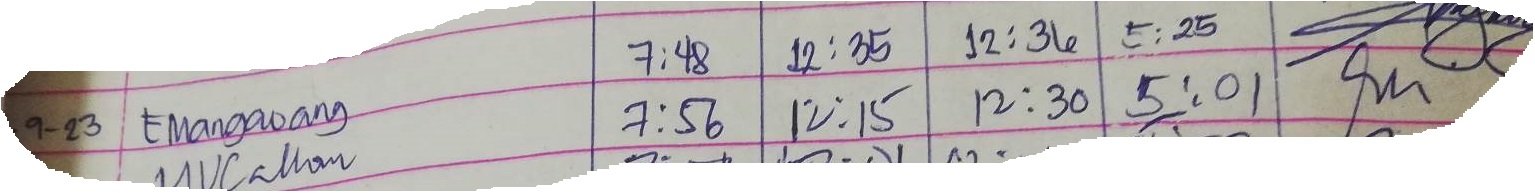 7:48 12:35 12:36 5:25
9-23 EMangaoang 7:56 12:15 12:30 5:01